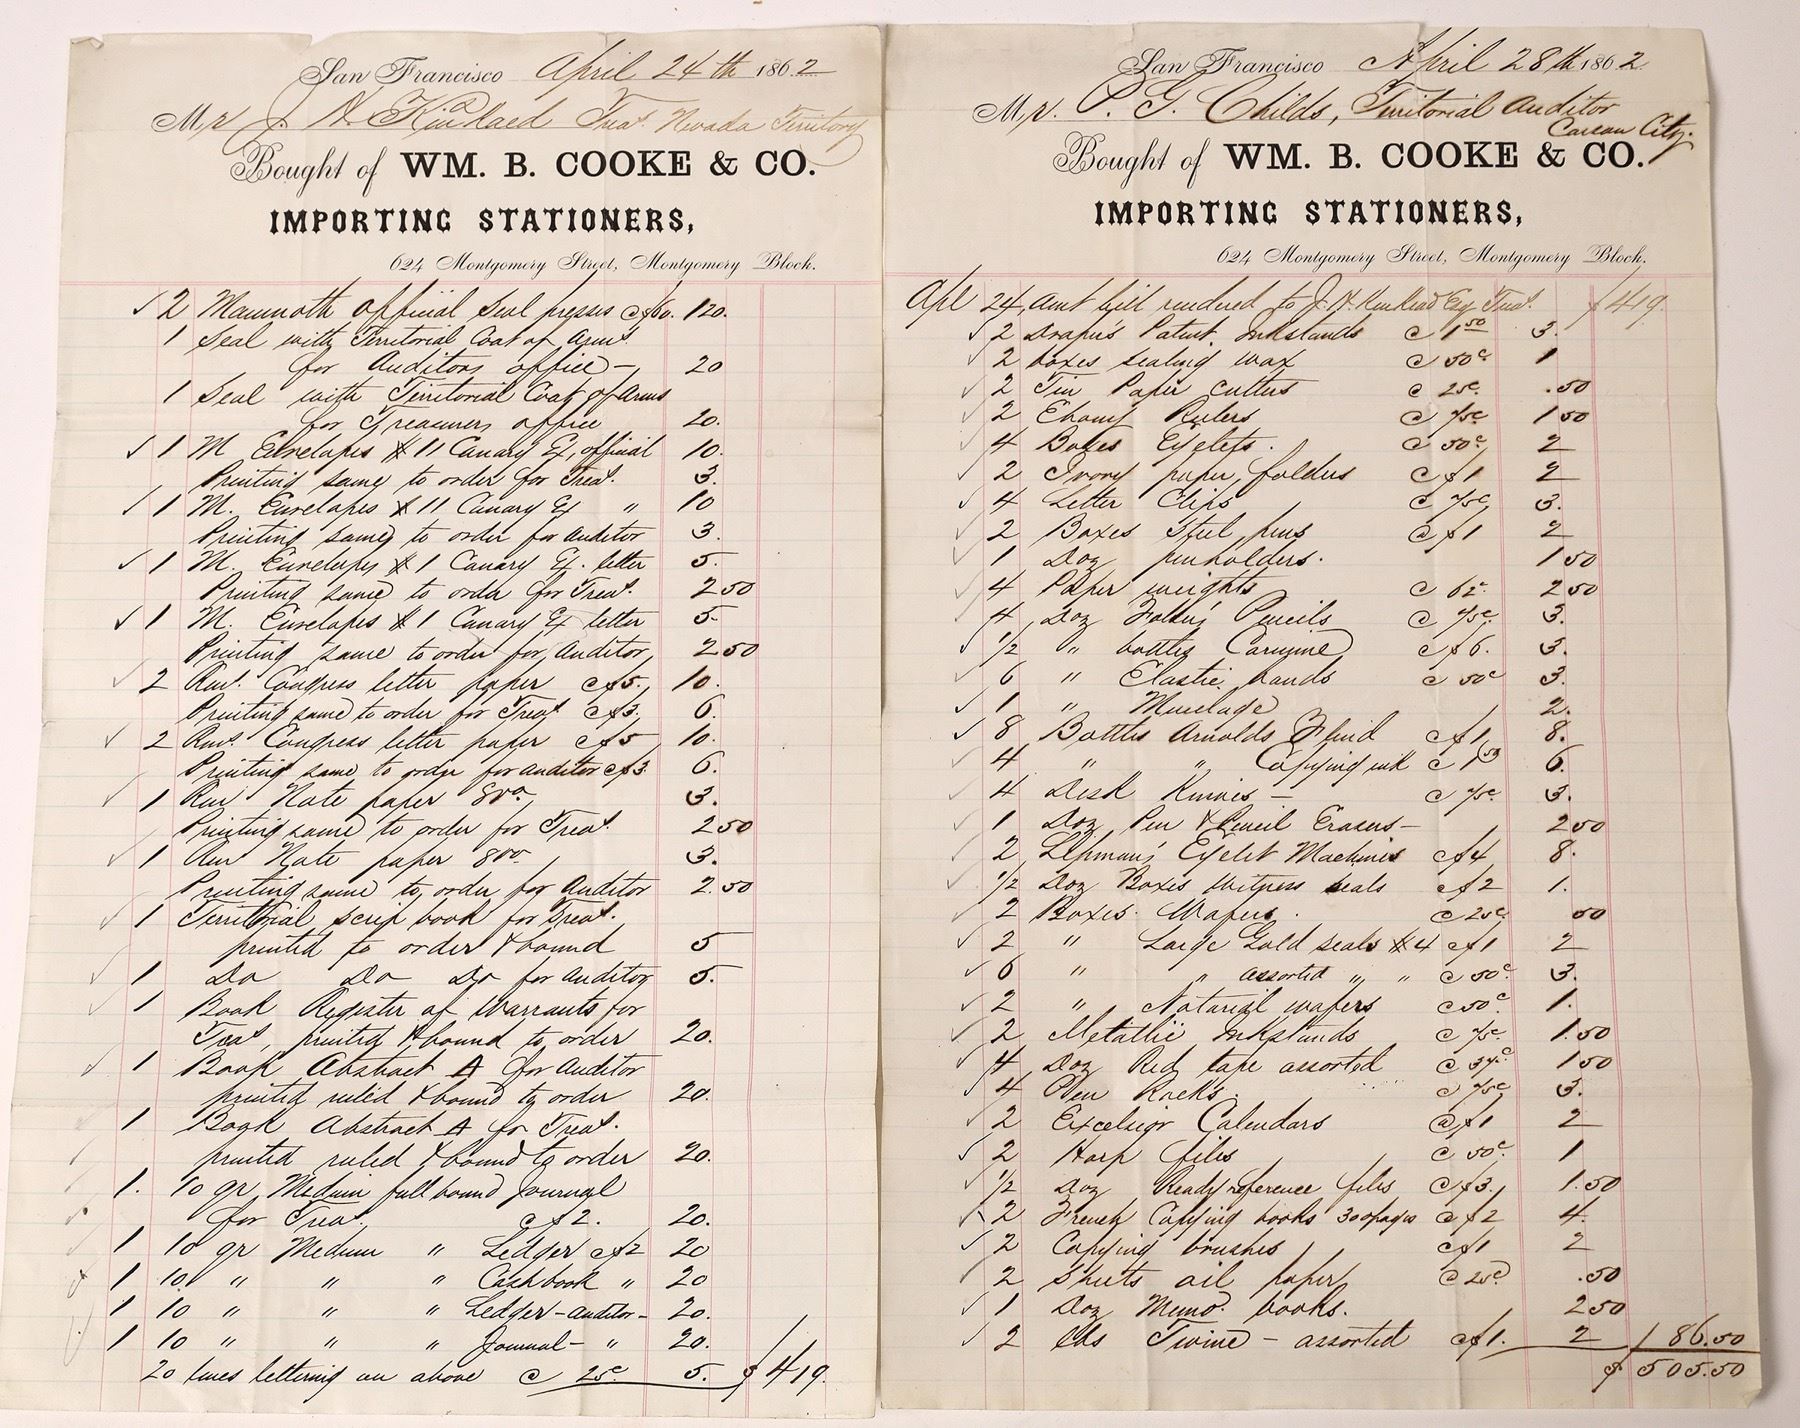 San Francisco April 24th 1862
Mr J. H. Kinkaed Treas. Nevada Territory
Bought of WM. B. COOKE & CO.
IMPORTING STATIONERS,
624 Montgomery Street, Montgomery Block.
✓ 2 Mammoth official Seal presses @ $60. 120.
1 Seal with Territorial Coat of Arms
for Auditors office – 20
1 Seal with Territorial Coat of Arms
for Treasurers office 20.
✓ 1 M Envelopes # 11 Canary Ex, official 10.
Printing same to order for Treas. 3.
✓ 1 M. Envelopes # 11 Canary Ex " 10
Printing same to order for Auditor 3.
✓ 1 M. Envelopes # 1 Canary Ex. letter 5.
Printing same to order for Treas. 2 50
✓ 1 M. Envelopes # 1 Canary Ex letter 5.
Printing same to order for Auditor, 2 50
✓ 2 Rms. Congress letter paper @ $5. 10.
Printing same to order for Treas @ $3. 6.
✓ 2 Rms. Congress letter paper @ $5 10.
Printing same to order for Auditor @ $3 6.
✓ 1 Rm Note paper 8vo. 3.
Printing same to order for Treas. 2 50
✓ 1 Rm Note paper 8vo. 3.
Printing same to order for Auditor 2.50
✓ 1 Territorial scrip book for Treas.
printed to order & bound 5
✓ 1 Do Do Do for Auditor 5.
✓ 1 Book Register of Warrants for
Treas, printed & bound to order 20.
✓ 1 Book Abstract A for Auditor
printed ruled & bound to order 20.
✓ 1 Book Abstract A for Treas.
printed ruled & bound to order 20.
1. 10 qr Medium full bound Journal
for Treas. @ $2. 20.
✓ 1 10 qr Medium " Ledger @ $2 20
✓ 1 10 " " " Cashbook " 20
1 10 " " " Ledger – Auditor – 20.
1 10 " " " Journal – " 20.
20 lines lettering on above @ 25c 5. $419.
San Francisco April 28th 1862
Mr. P. G. Childs, Territorial Auditor
Carson City.
Bought of WM. B. COOKE & CO.
IMPORTING STATIONERS,
624 Montgomery Street, Montgomery Block.
Apl 24, Amt bill rendered to J. H. Kinkead Esq Treas. $419.
✓ 2 Draper's Patent Inkstands @ 1 50 3.
✓ 2 boxes sealing wax @ 50c 1
✓ 2 Tin Paper cutters @ 25c. .50
✓ 2 Ebony Rulers @ 75c 1 50
✓ 4 Boxes Eyelets. @ 50c. 2
✓ 2 Ivory paper folders @ $1 2
✓ 4 Letter Clips @ 75c 3.
✓ 2 Boxes Steel pens @ $1 2
✓ 1 Doz penholders. 1 50
✓ 4 Paper weights @ 62c 2 50
✓ 4 Doz Faber's Pencils @ 75c 3.
✓ 1/2 " bottles Carmine @ $6. 3.
✓ 6 " Elastic bands @ 50c 3.
✓ 1 " Mucilage 2.
✓ 8 Bottles Arnolds Fluid @ $1 8.
✓ 4 " " Copying ink @ 1 50 6.
✓ 4 Desk Knives – @ 75c. 3.
✓ 1 Doz Pen & Pencil Erasers – 2 50
✓ 2 Lipman's Eyelet Machines @ $4 8.
✓ 1/2 Doz Boxes Witness seals @ $2 1.
✓ 2 Boxes. Wafers. @ 25c. 50
✓ 2 " Large Gold seals # 4 @ $1 2
✓ 6 " " assorted " " @ 50c. 3.
✓ 2 " Notarial wafers @ 50c 1.
✓ 2 Metallic Inkstands @ 75c. 1.50
✓ 4 Doz Red tape assorted @ 37c. 1 50
✓ 4 Pen Racks. @ 75c 3.
✓ 2 Excelsior Calendars @ $1 2
✓ 2 Harp files @ 50c. 1
✓ 1/2 Doz Ready reference files @ $3. 1.50
✓ 2 French Copying books 300 pages @ $2 4.
✓ 2 Copying brushes @ $1 2
✓ 2 Sheets oil paper @ 25c .50
✓ 1 Doz Memo. books. 2 50
✓ 2 lbs Twine – assorted @ $1. 2 86.50
$ 505.50